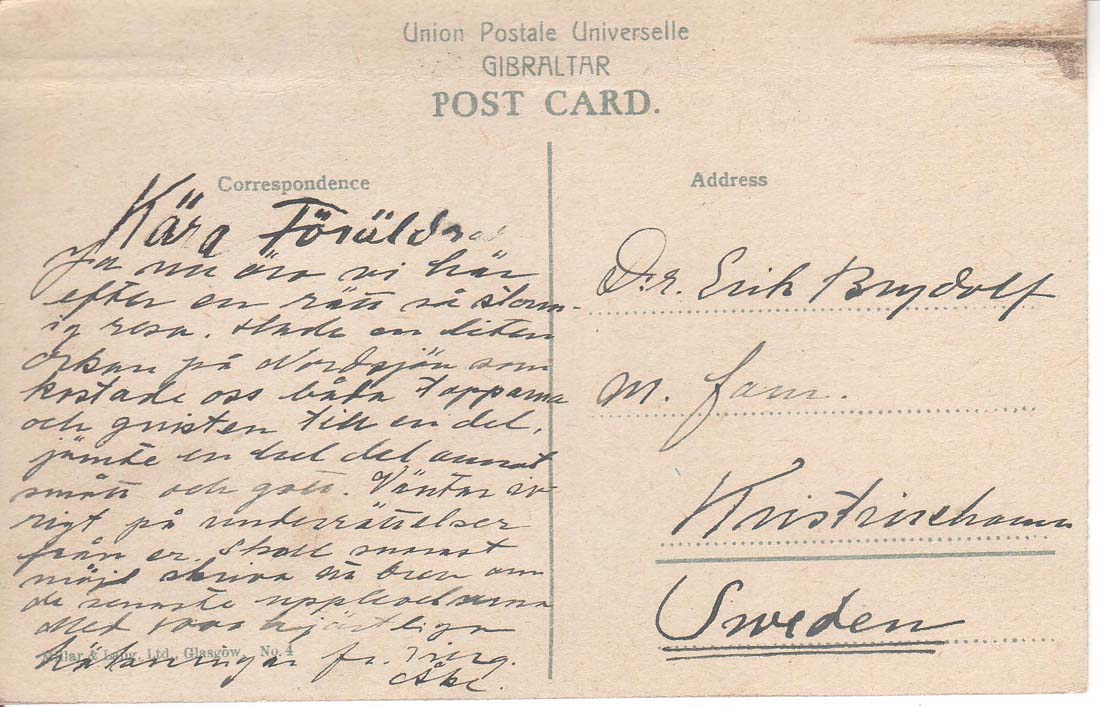 Union Postale Universelle
GIBRALTAR
POST CARD.
Correspondence
Kära Föräldrar
Ja nu äro vi här
efter en rätt så storm-
ig resa. Hade en liten
orkan på Nordsjön som
kostade oss båda topparna
och gnisten till en del,
jämte en hel del annat
smått och gott. Väntar iv-
rigt på underrättelser
från er. Skall snarast
möjl skriva ett brev om
de senaste upplevelserna
Med 1000 hjärtliga
hälsningar fr.
Åke.
Millar & Lang, Ltd., Glasgow, No. 4
Address
Dr. Erik Brydolf
m. fam.
Kristinehamn
Sweden